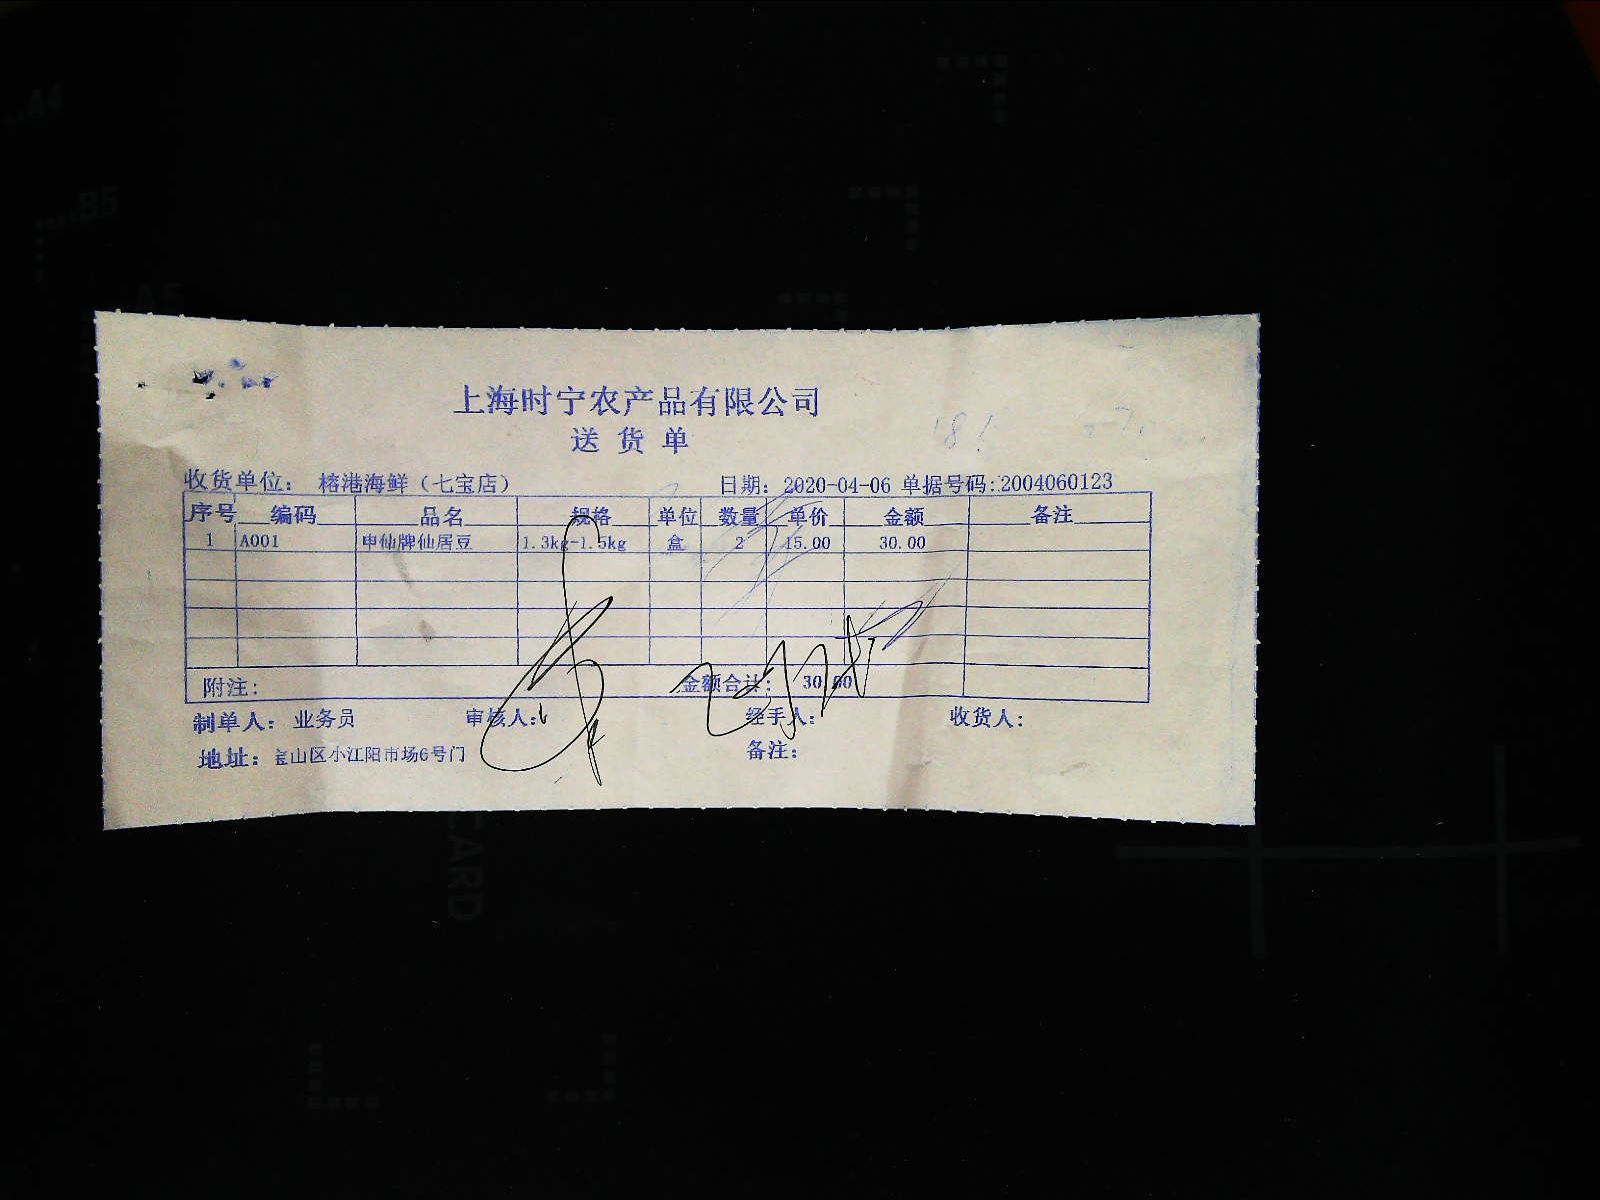 上海时宁农产品有限公司
送货单
收货单位： 椿港海鲜（七宝店） 日期： 2020-04-06 单据号码:2004060123
序号 编码 品名 规格 单位 数量 单价 金额 备注
1 A001 申仙牌仙居豆 1.3kg-1.5kg 盒 2 15.00 30.00
附注： 金额合计： 30.00
制单人： 业务员 审核人： 经手人： 收货人：
地址： 宝山区小江阳市场6号门 备注：
A4
B5
A5
CARD